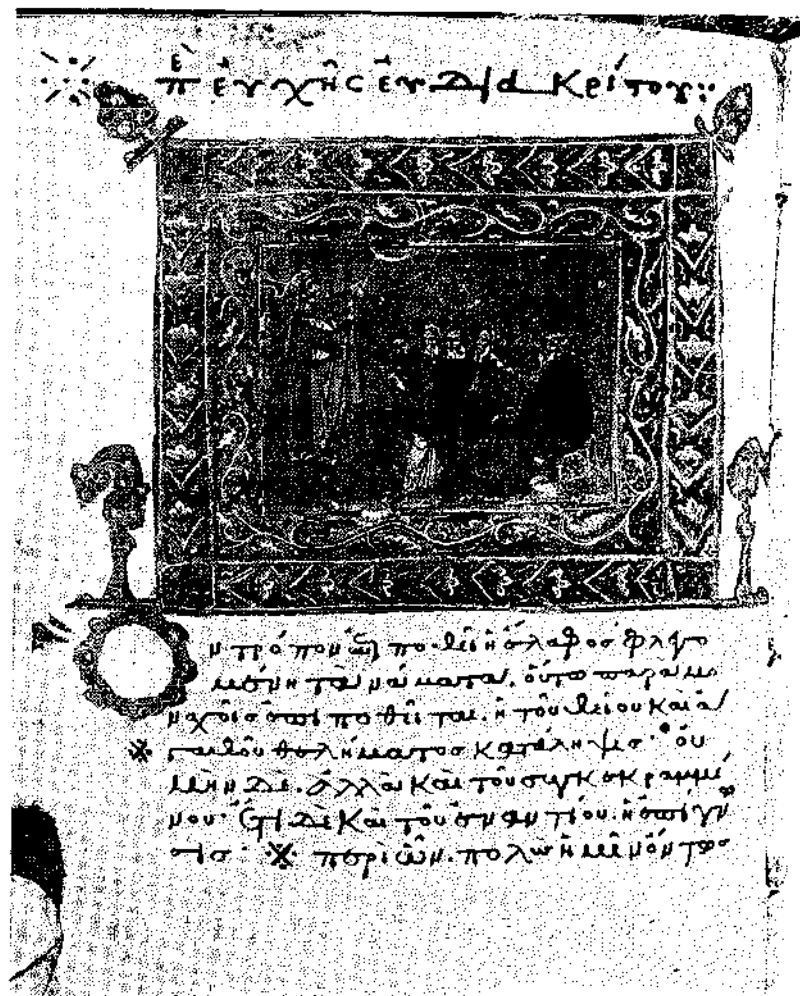 εὐχῆς εὐδιακρίτου:
ὃν τρόπον ποθεῖ ἡ ἔλαφος φλεγο
μένη τὰ νάματα. οὕτω παρὰ μο
ναχοῖς ἐπιποθεῖται. ἡ τοῦ θείου καὶ ἀ
γαθοῦ θελήματος κατάληψις· οὐ
μὴν δὲ. ἀλλὰ καὶ τοῦ συγκεκραμμέ
νου· ἔτι δὲ καὶ τοῦ ἐναντίου. ἡ ἐπίγνω
σις· περὶ ὧν. πολὺς ἡμῖν ὄντως